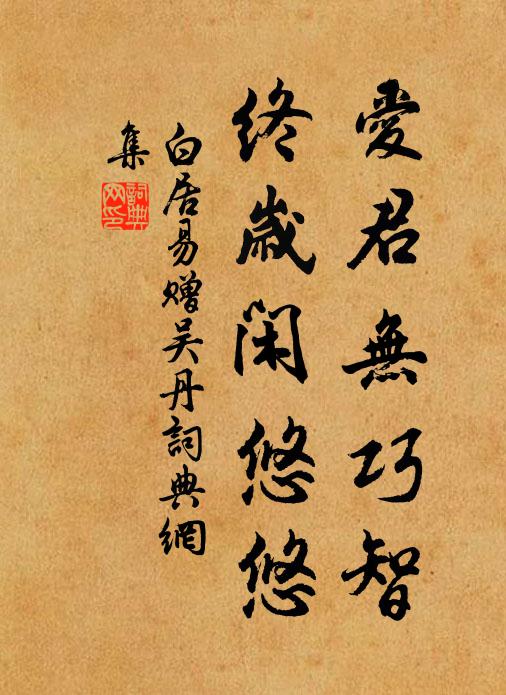 愛君無巧智
終歲閑悠悠
白居易贈吴丹詞典網
集
詞典
网印